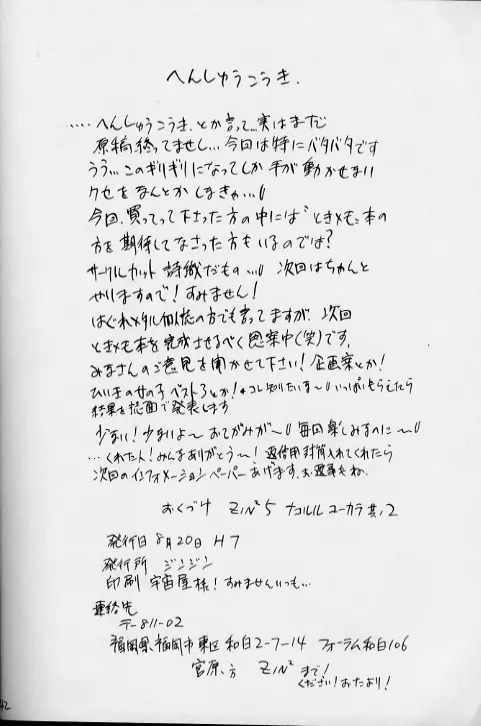 へんしゅうこうき.
....へんしゅうこうき.とか言って...実はまだ
原稿終ってませし...今回は特にバタバタです
うぅ...このギリギリになってしか手が動かせない
クセをなんとかしなきゃ...
今回、買ってって下さった方の中には"ときメモ"本の
方を期待してなさった方もいるのでは?
サークルカット詩織だもの...次回はちゃんと
やりますので!すみません!
はぐれメタルの方でも言ってますが、次回
ときメモ本を完成させるべく思案中(笑)です。
みなさんのご意見を聞かせて下さい!企画案とか!
ひいきの女の子ベスト3とか!←コレ知りたいな〜いっぱいもらえたら
結果を誌面で発表します
少ない!少ないよ〜おてがみが〜毎回楽しみなのに〜
...くれた人!みんなありがとう〜!返信用封筒入れてくれたら
次回のインフォメーションペーパーあげます。お返事もね。
おくづけ ZIN²5 ナコルルユーカラ其ノ2
発行日 8月20日 H7
発行所 ジンジン
印刷 宇宙屋様!すみませんいつも...
連絡先
〒811-02
福岡県、福岡市東区和白2-7-14 フォーラム和白106
宮原、方 ZIN² まで!
ください!おたより!
42